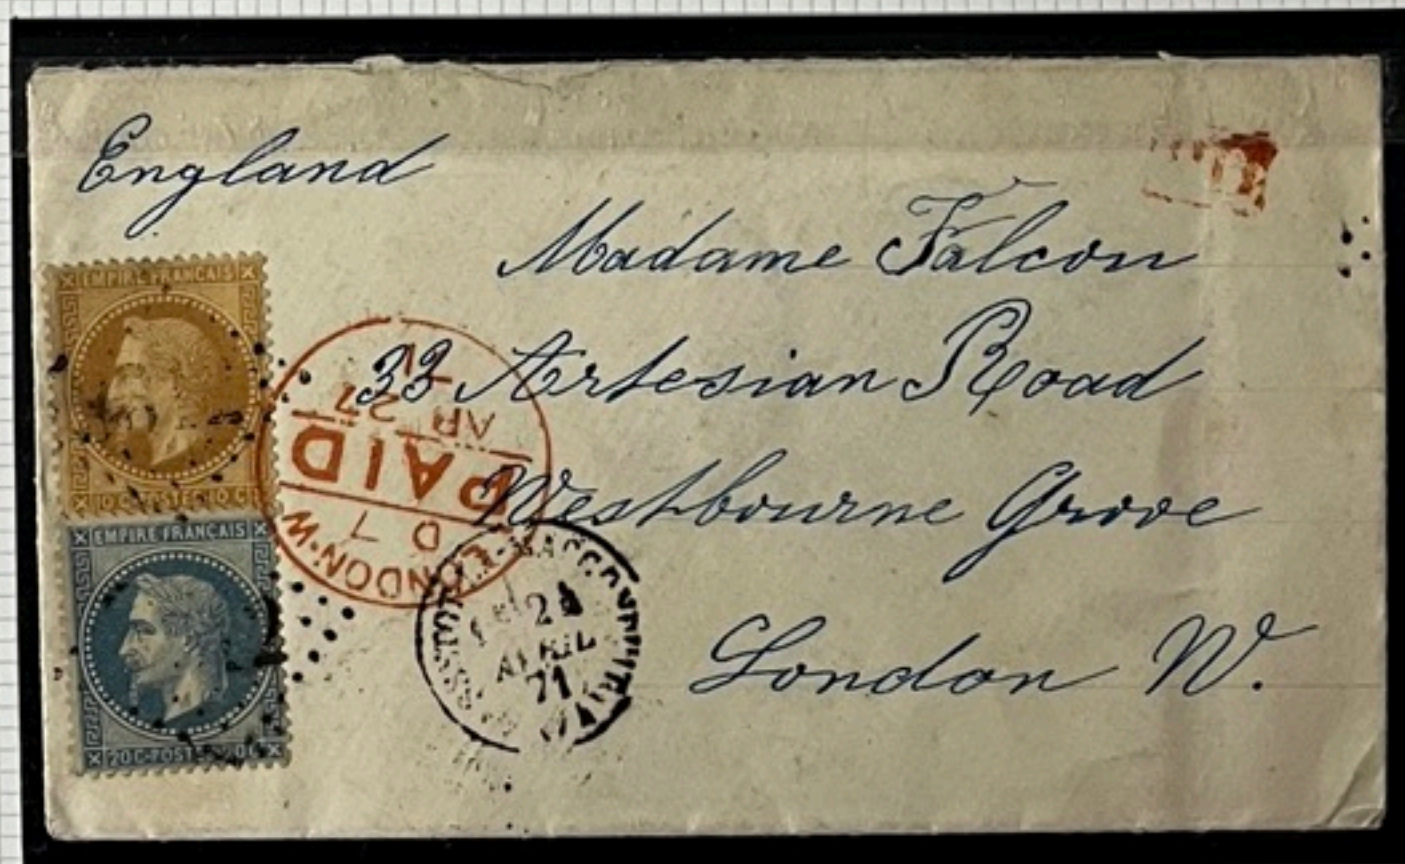 England
Madame Falcon
33 Artesian Road
Westbourne Grove
London W.
EMPIRE FRANÇAIS
10 C POSTES 10 C
EMPIRE FRANÇAIS
20 C POSTES 20 C
LONDON·W
7
PAID
AP 27
71
24
AVRIL
71